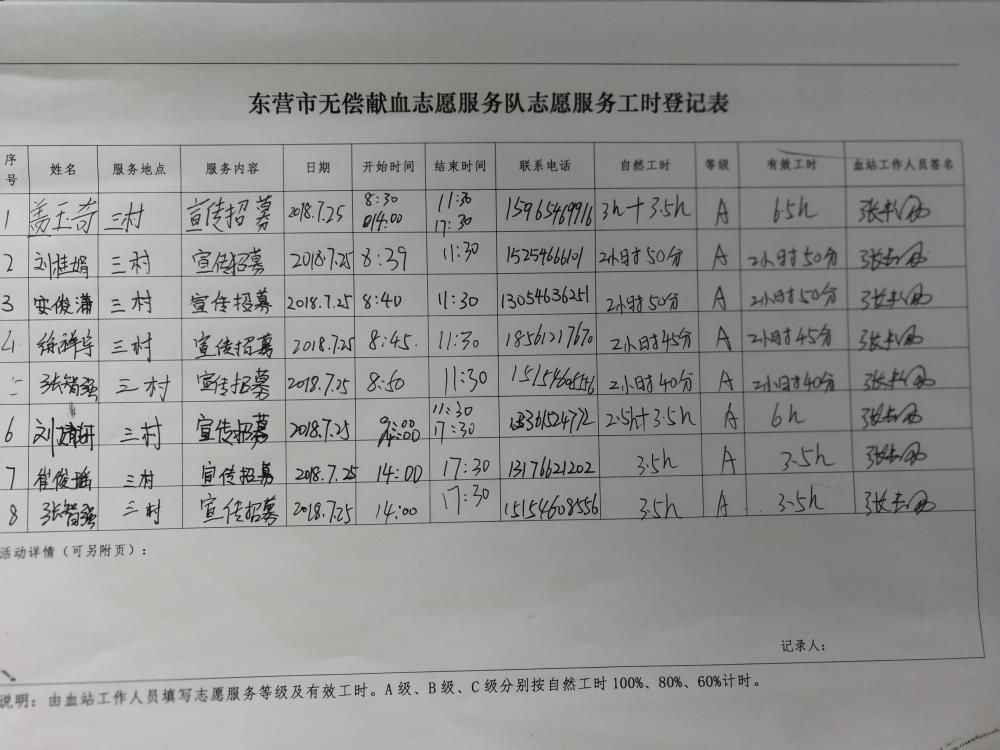 东营市无偿献血志愿服务队志愿服务工时登记表
序号 姓名 服务地点 服务内容 日期 开始时间 结束时间 联系电话 自然工时 等级 有效工时 血站工作人员签名
1 盖玉奇 三村 宣传招募 2018.7.25 8:30 14:00 11:30 17:30 15965469916 3h+3.5h A 6.5h
2 刘桂娟 三村 宣传招募 2018.7.25 8:39 11:30 15254666101 2小时50分 A 2小时50分
3 安俊潇 三村 宣传招募 2018.7.25 8:40 11:30 13054636251 2小时50分 A 2小时50分
4 徐祥宇 三村 宣传招募 2018.7.25 8:45 11:30 18561217670 2小时45分 A 2小时45分
张智强 三村 宣传招募 2018.7.25 8:50 11:30 15154608556 2小时40分 A 2小时40分
6 刘靖妍 三村 宣传招募 2018.7.25 9:00 14:00 11:30 17:30 13361524772 2.5h+3.5h A 6h
7 崔俊瑶 三村 宣传招募 2018.7.25 14:00 17:30 13176621202 3.5h A 3.5h
8 张智强 三村 宣传招募 2018.7.25 14:00 17:30 15154608556 3.5h A 3.5h
活动详情（可另附页）：
记录人：
说明：由血站工作人员填写志愿服务等级及有效工时。A级、B级、C级分别按自然工时100%、80%、60%计时。